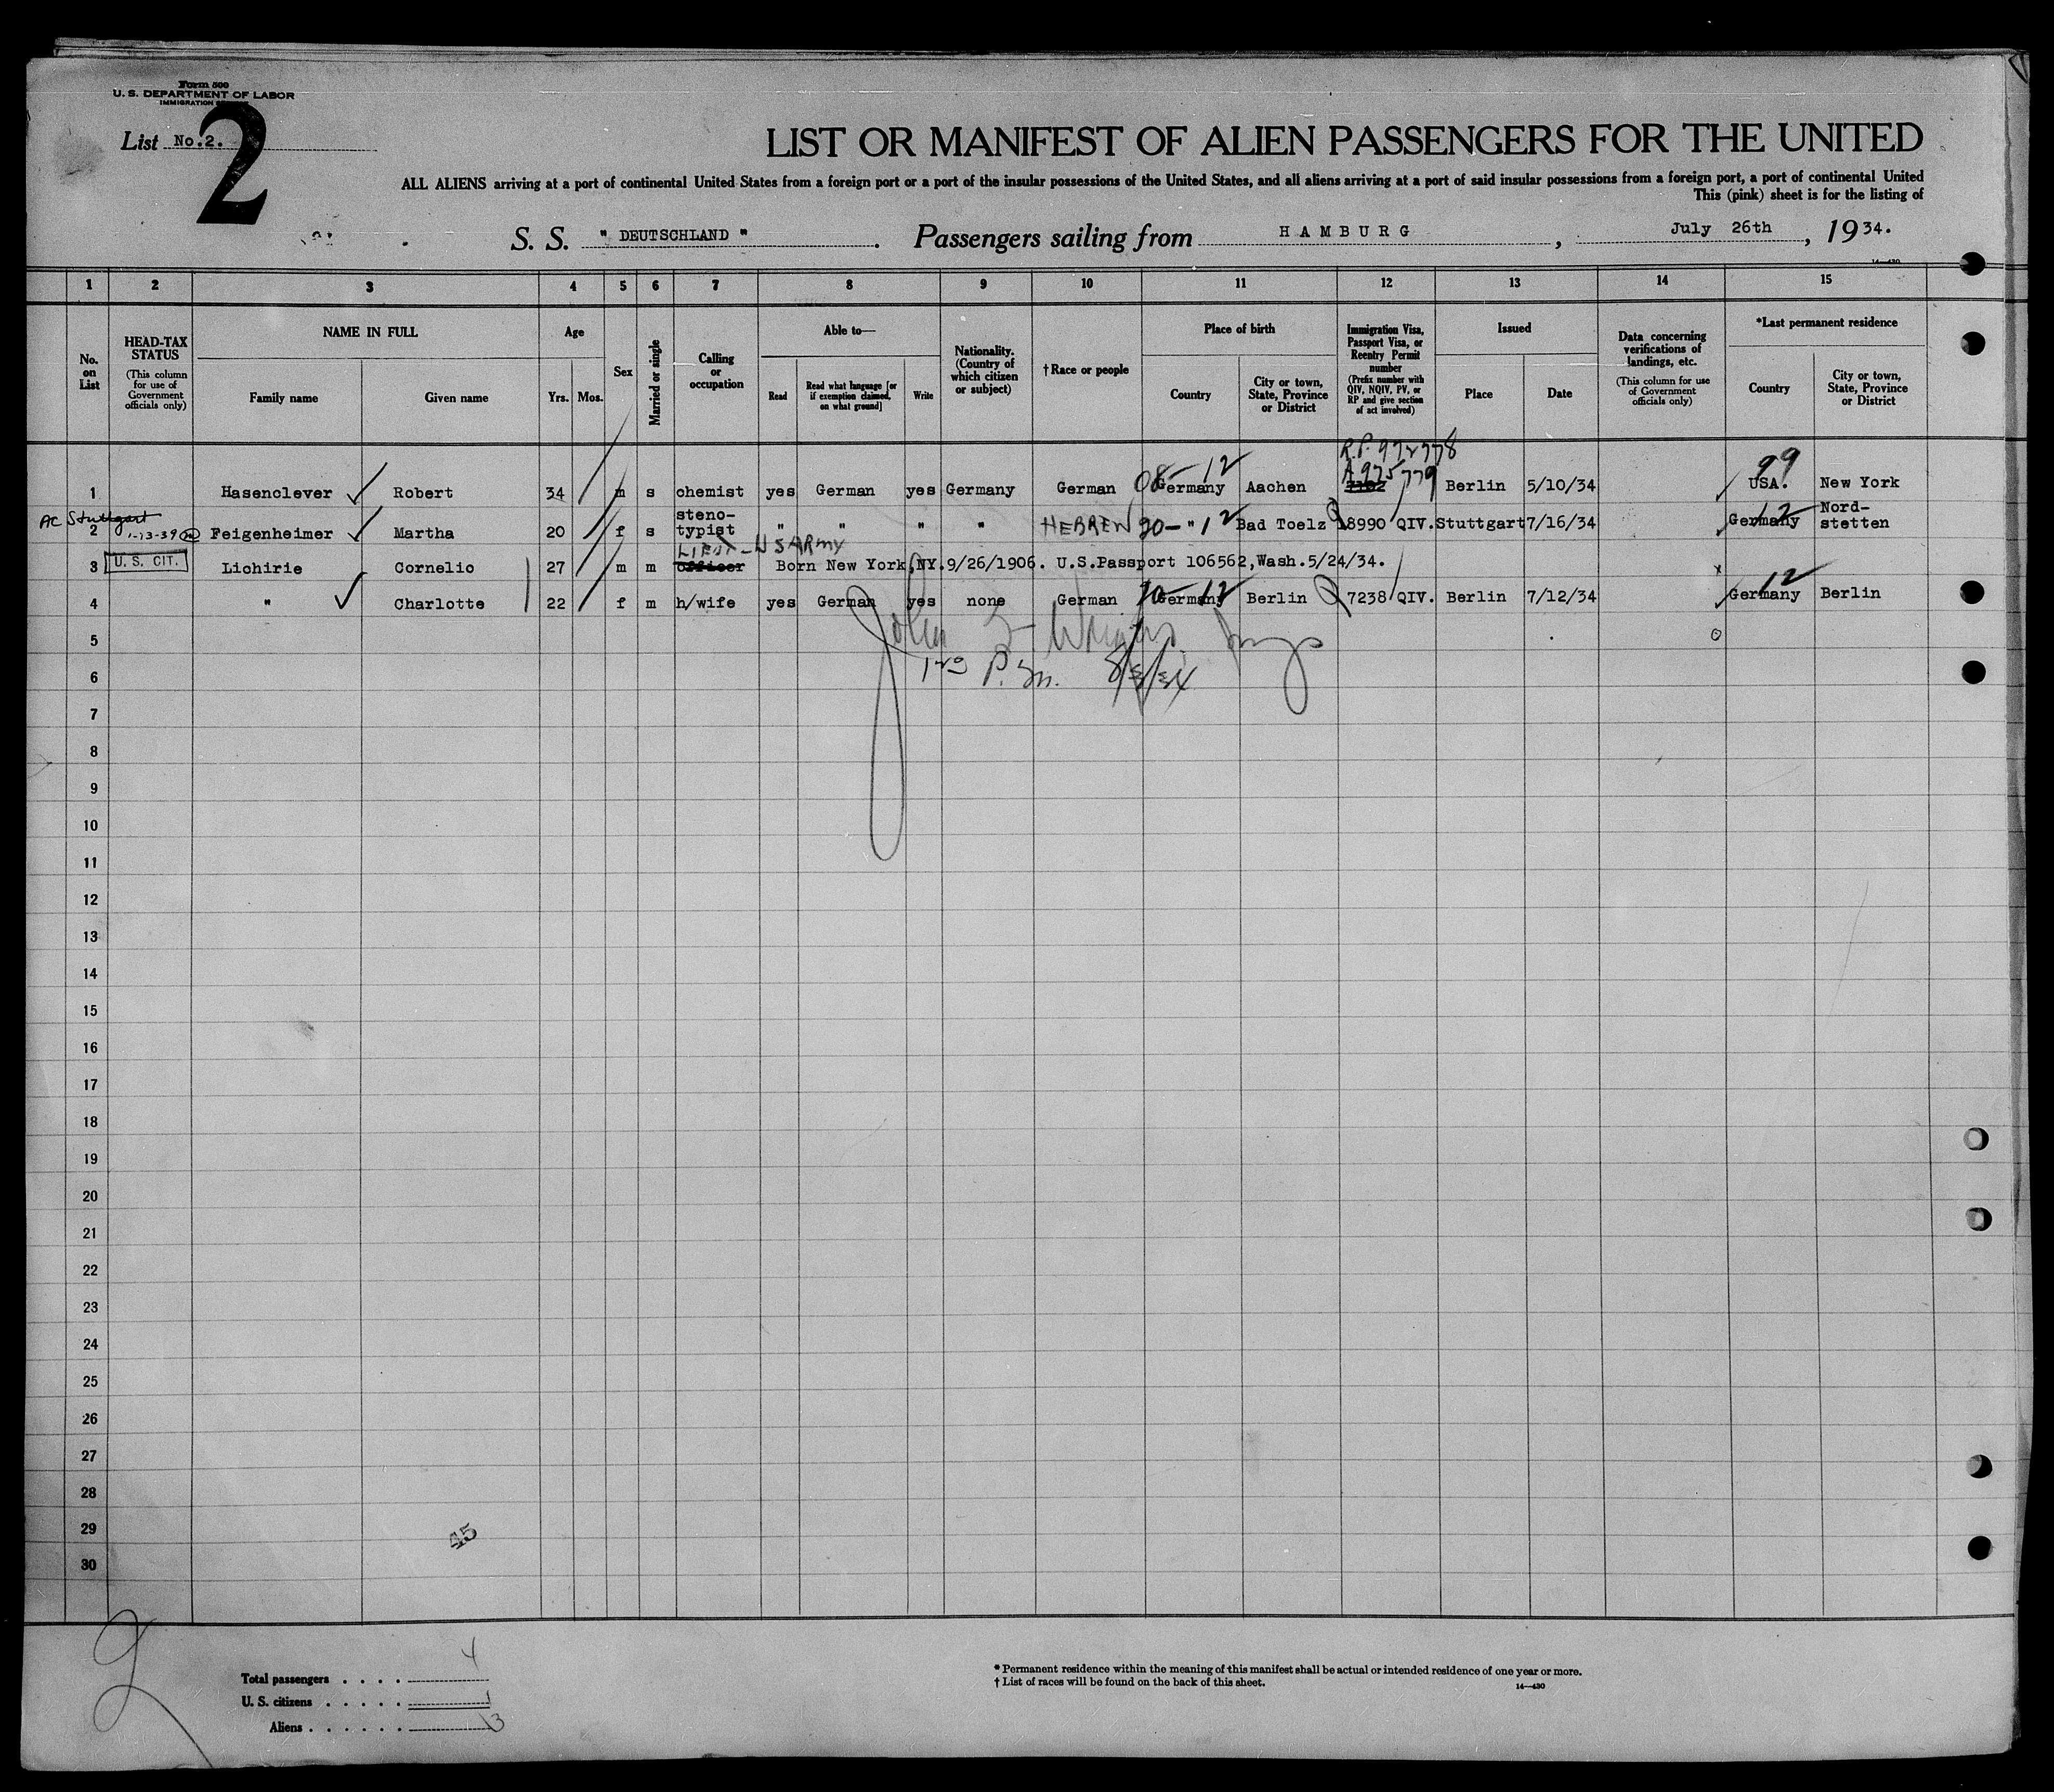 Form 500
U. S. DEPARTMENT OF LABOR
IMMIGRATION
List No.2.
2
LIST OR MANIFEST OF ALIEN PASSENGERS FOR THE UNITED
ALL ALIENS arriving at a port of continental United States from a foreign port or a port of the insular possessions of the United States, and all aliens arriving at a port of said insular possessions from a foreign port, a port of continental United
This (pink) sheet is for the listing of
S. S. " DEUTSCHLAND " . Passengers sailing from HAMBURG , July 26th , 1934.
14—430
1 2 3 4 5 6 7 8 9 10 11 12 13 14 15
No. on List
HEAD-TAX STATUS (This column for use of Government officials only)
NAME IN FULL
Family name Given name
Age
Yrs. Mos.
Sex
Married or single
Calling or occupation
Able to—
Read Read what language [or if exemption claimed, on what ground] Write
Nationality. (Country of which citizen or subject)
†Race or people
Place of birth
Country City or town, State, Province or District
Immigration Visa, Passport Visa, or Reentry Permit number (Prefix number with QIV, NQIV, PV, or RP and give section of act involved)
Issued
Place Date
Data concerning verifications of landings, etc. (This column for use of Government officials only)
*Last permanent residence
Country City or town, State, Province or District
R.P. 972778
08-12 A 975779 99
1 Hasenclever Robert 34 m s chemist yes German yes Germany German Germany Aachen Berlin 5/10/34 USA. New York
AC Stuttgart
1-13-39
2 Feigenheimer Martha 20 f s steno-typist " " " " HEBREW 20- " 12 Bad Toelz 18990 QIV. Stuttgart 7/16/34 Germany 12 Nord-stetten
LIEUT-US ARMY
3 U. S. CIT. Lichirie Cornelio 27 m m officer Born New York,NY.9/26/1906. U.S.Passport 106562,Wash.5/24/34.
4 " Charlotte 22 f m h/wife yes German yes none German 20-12 Germany Berlin 7238 QIV. Berlin 7/12/34 Germany 12 Berlin
5
John
6
P.M. 8/3/34
7
8
9
10
11
12
13
14
15
16
17
18
19
20
21
22
23
24
25
26
27
28
29
45
30
2
Total passengers . . . . 4
U. S. citizens . . . . . 1
Aliens . . . . . . 3
* Permanent residence within the meaning of this manifest shall be actual or intended residence of one year or more.
† List of races will be found on the back of this sheet.
14—430